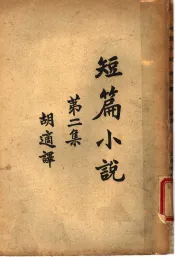 短篇小説
第二集
胡適譯